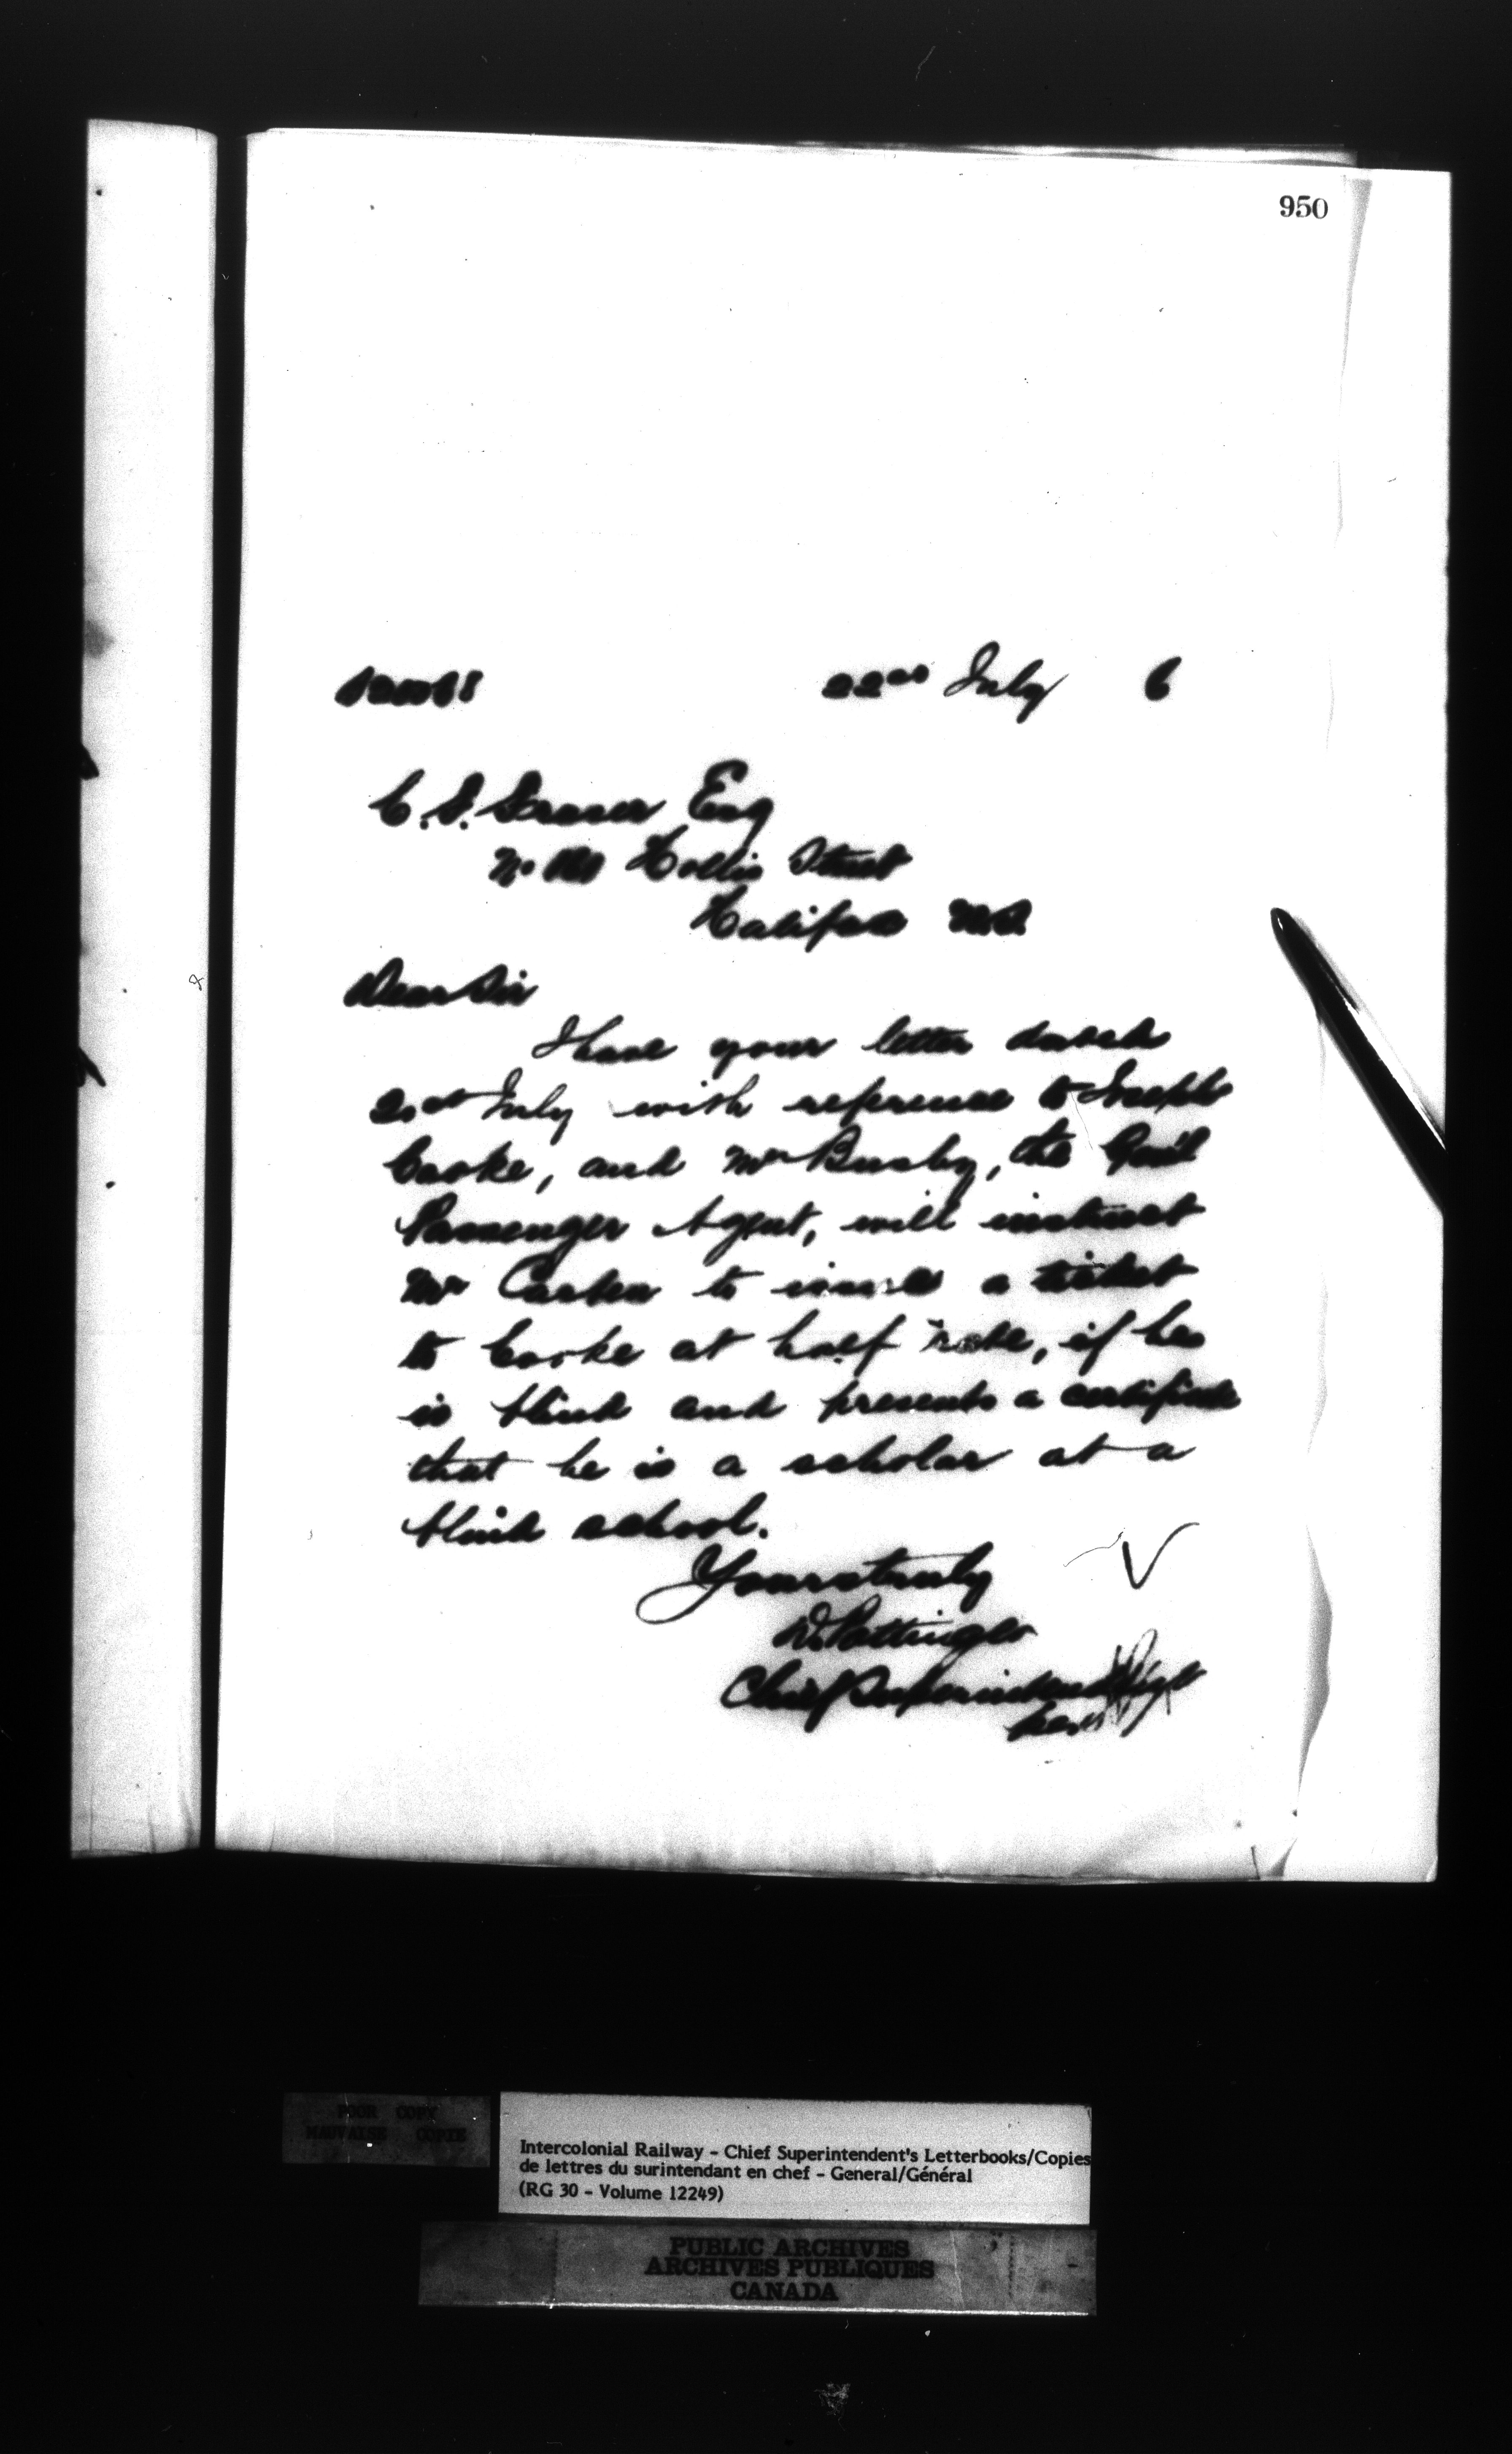 950
22nd July 6
C. F. Fraser Esq
No Hollis Street
Halifax N.S.
Dear Sir
I have your letter dated
21st July with reference to Joseph
Cooke, and Mr Busby, the Gen'l
Passenger Agent, will instruct
Mr to issue a ticket
to Cooke at half rate, if he
is blind and presents a certificate
that he is a scholar at a
blind school.
Yours truly
D. Pottinger
Chief Superintendent
POOR COPY
MAUVAISE COPIE
Intercolonial Railway - Chief Superintendent's Letterbooks/Copies
de lettres du surintendant en chef - General/Général
(RG 30 - Volume 12249)
PUBLIC ARCHIVES
ARCHIVES PUBLIQUES
CANADA